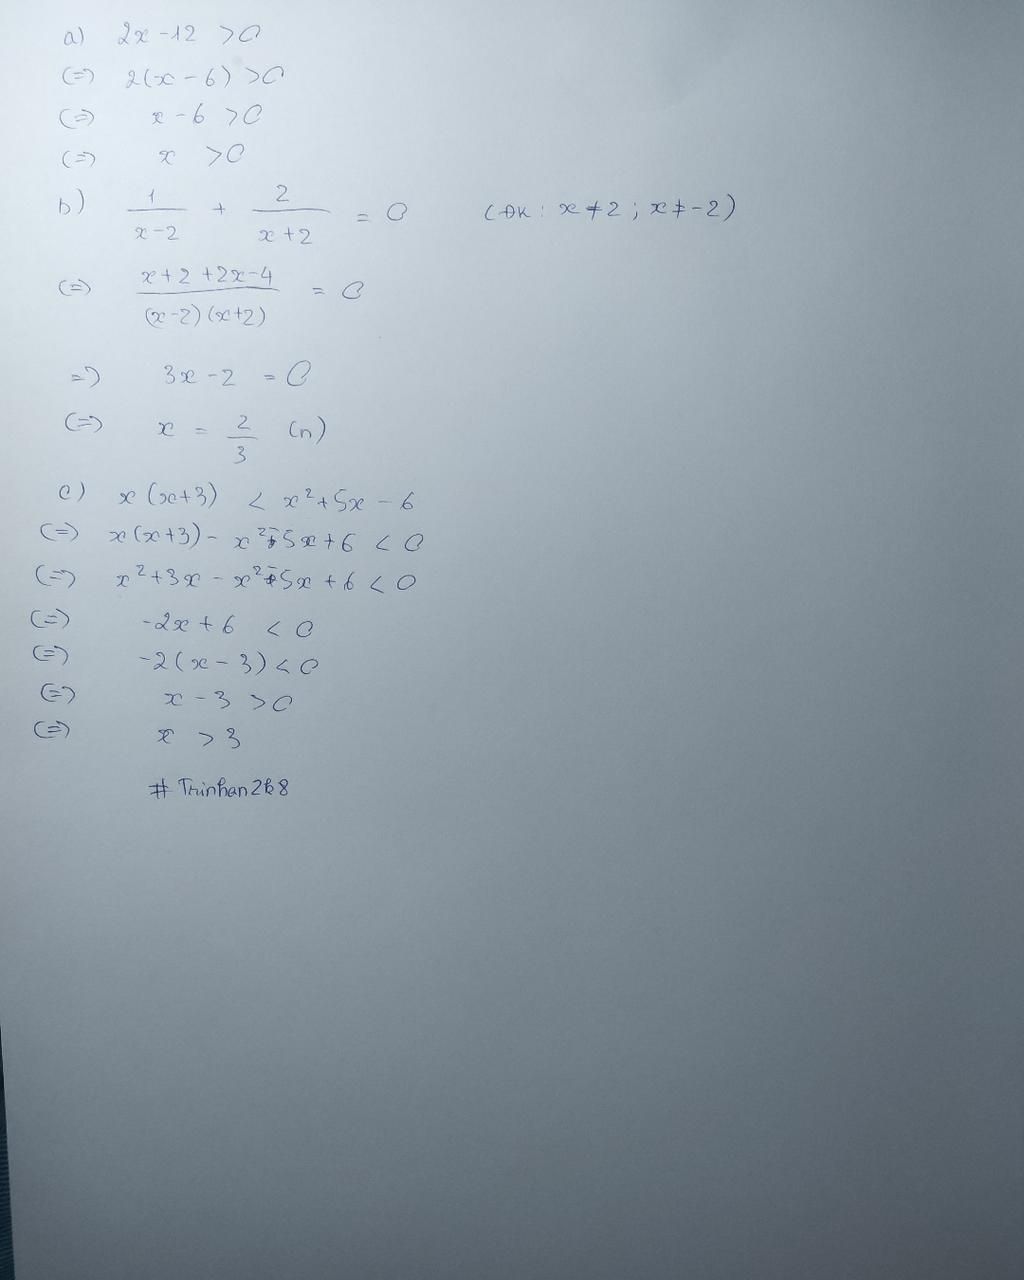 a) 2x - 12 > 0
(=) 2(x - 6) > 0
(=) x - 6 > 0
(=) x > 0
b) 1/(x-2) + 2/(x+2) = 0 (ĐK : x ≠ 2 ; x ≠ -2)
(=) (x+2+2x-4)/((x-2)(x+2)) = 0
=) 3x - 2 = 0
(=) x = 2/3 (n)
c) x(x+3) < x²+5x - 6
(=) x(x+3) - x² - 5x + 6 < 0
(=) x² + 3x - x² - 5x + 6 < 0
(=) -2x + 6 < 0
(=) -2(x - 3) < 0
(=) x - 3 > 0
(=) x > 3
# Trinhan2k8